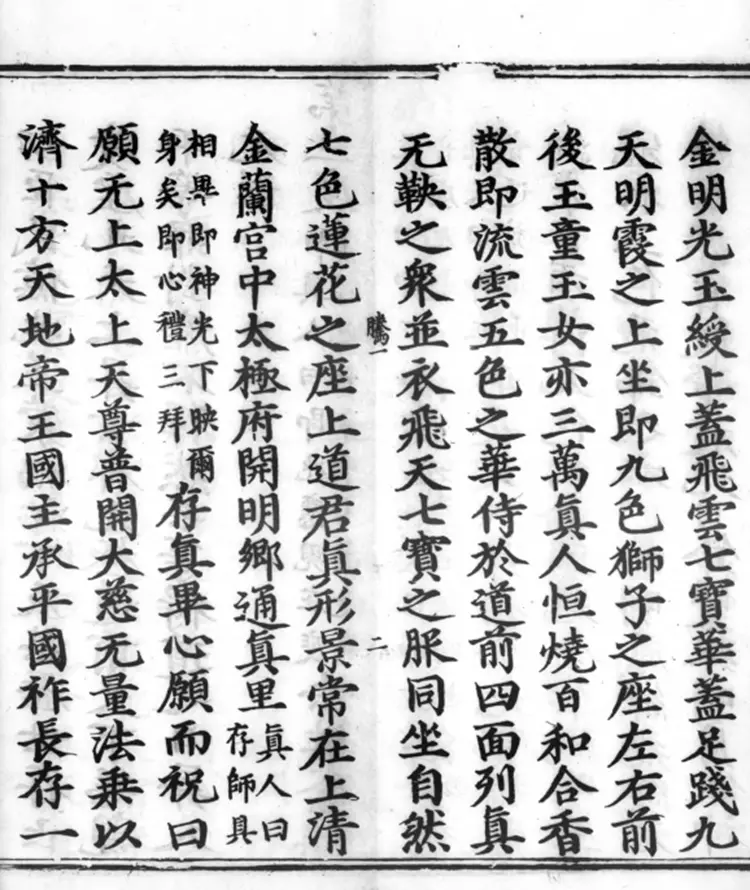 金明光玉綬上蓋飛雲七寶華蓋足踐九
天明霞之上坐即九色獅子之座左右前
後玉童玉女亦三萬真人恒燒百和合香
散即流雲五色之華侍於道前四面列真
无鞅之衆並衣飛天七寶之服同坐自然
騰一
二
七色蓮花之座上道君真形景常在上清
金蘭宫中太極府開明鄉通真里真人曰存師具
相畢即神光下映爾身矣即心禮三拜存真畢心願而祝曰
願无上太上天尊普開大慈无量法乗以
濟十方天地帝王國主承平國祚長存一